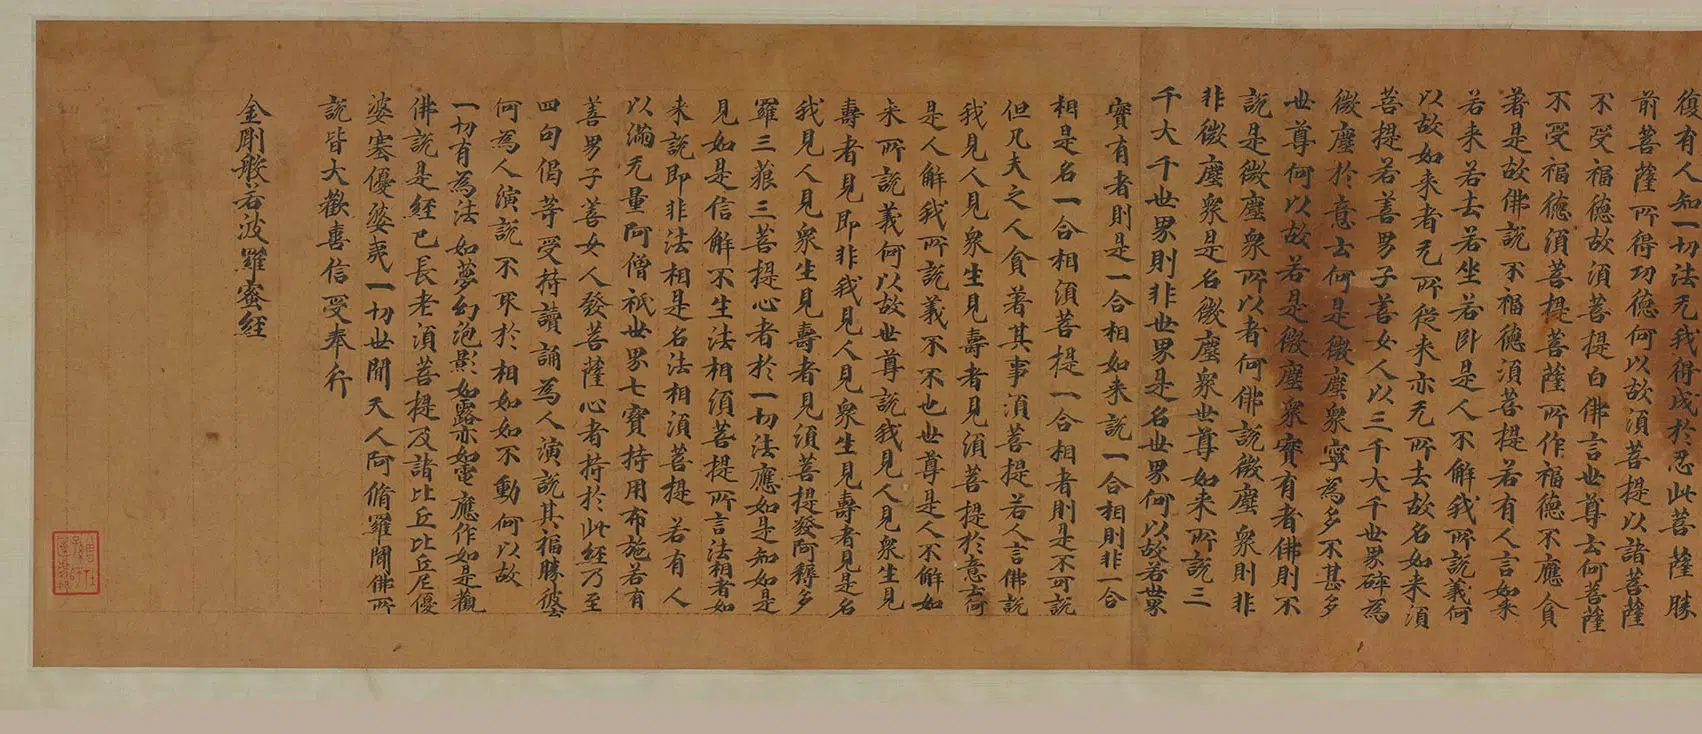 復有人知一切法无我得成於忍此菩薩勝
前菩薩所得功德何以故須菩提以諸菩薩
不受福德故須菩提白佛言世尊云何菩薩
不受福德須菩提菩薩所作福德不應貪
著是故佛說不福德須菩提若有人言如來
若来若去若坐若卧是人不解我所說義何
以故如来者无所從来亦无所去故名如来須
菩提若善男子善女人以三千大千世界碎為
微塵於意云何是微塵衆寧為多不甚多
世尊何以故若是微塵衆實有者佛則不
說是微塵衆所以者何佛說微塵衆則非
非微塵衆是名微塵衆世尊如来所說三
千大千世界則非世界是名世界何以故若世界
實有者則是一合相如来說一合相則非一合
相是名一合相須菩提一合相者則是不可說
但凡夫之人貪著其事須菩提若人言佛說
我見人見衆生見壽者見須菩提於意云何
是人解我所說義不不也世尊是人不解如
来所說義何以故世尊說我見人見衆生見
壽者見即非我見人見衆生見壽者見是名
我見人見衆生見壽者見須菩提發阿耨多
羅三藐三菩提心者於一切法應如是知如是
見如是信解不生法相須菩提所言法相者如
来說即非法相是名法相須菩提若有人
以滿无量阿僧祇世界七寶持用布施若有
善男子善女人發菩薩心者持於此經乃至
四句偈等受持讀誦為人演說其福勝彼云
何為人演說不取於相如如不動何以故
一切有為法如夢幻泡影如露亦如電應作如是觀
佛說是經已長老須菩提及諸比丘比丘尼優
婆塞優婆夷一切世間天人阿脩羅聞佛所
說皆大歡喜信受奉行
金剛般若波羅蜜經